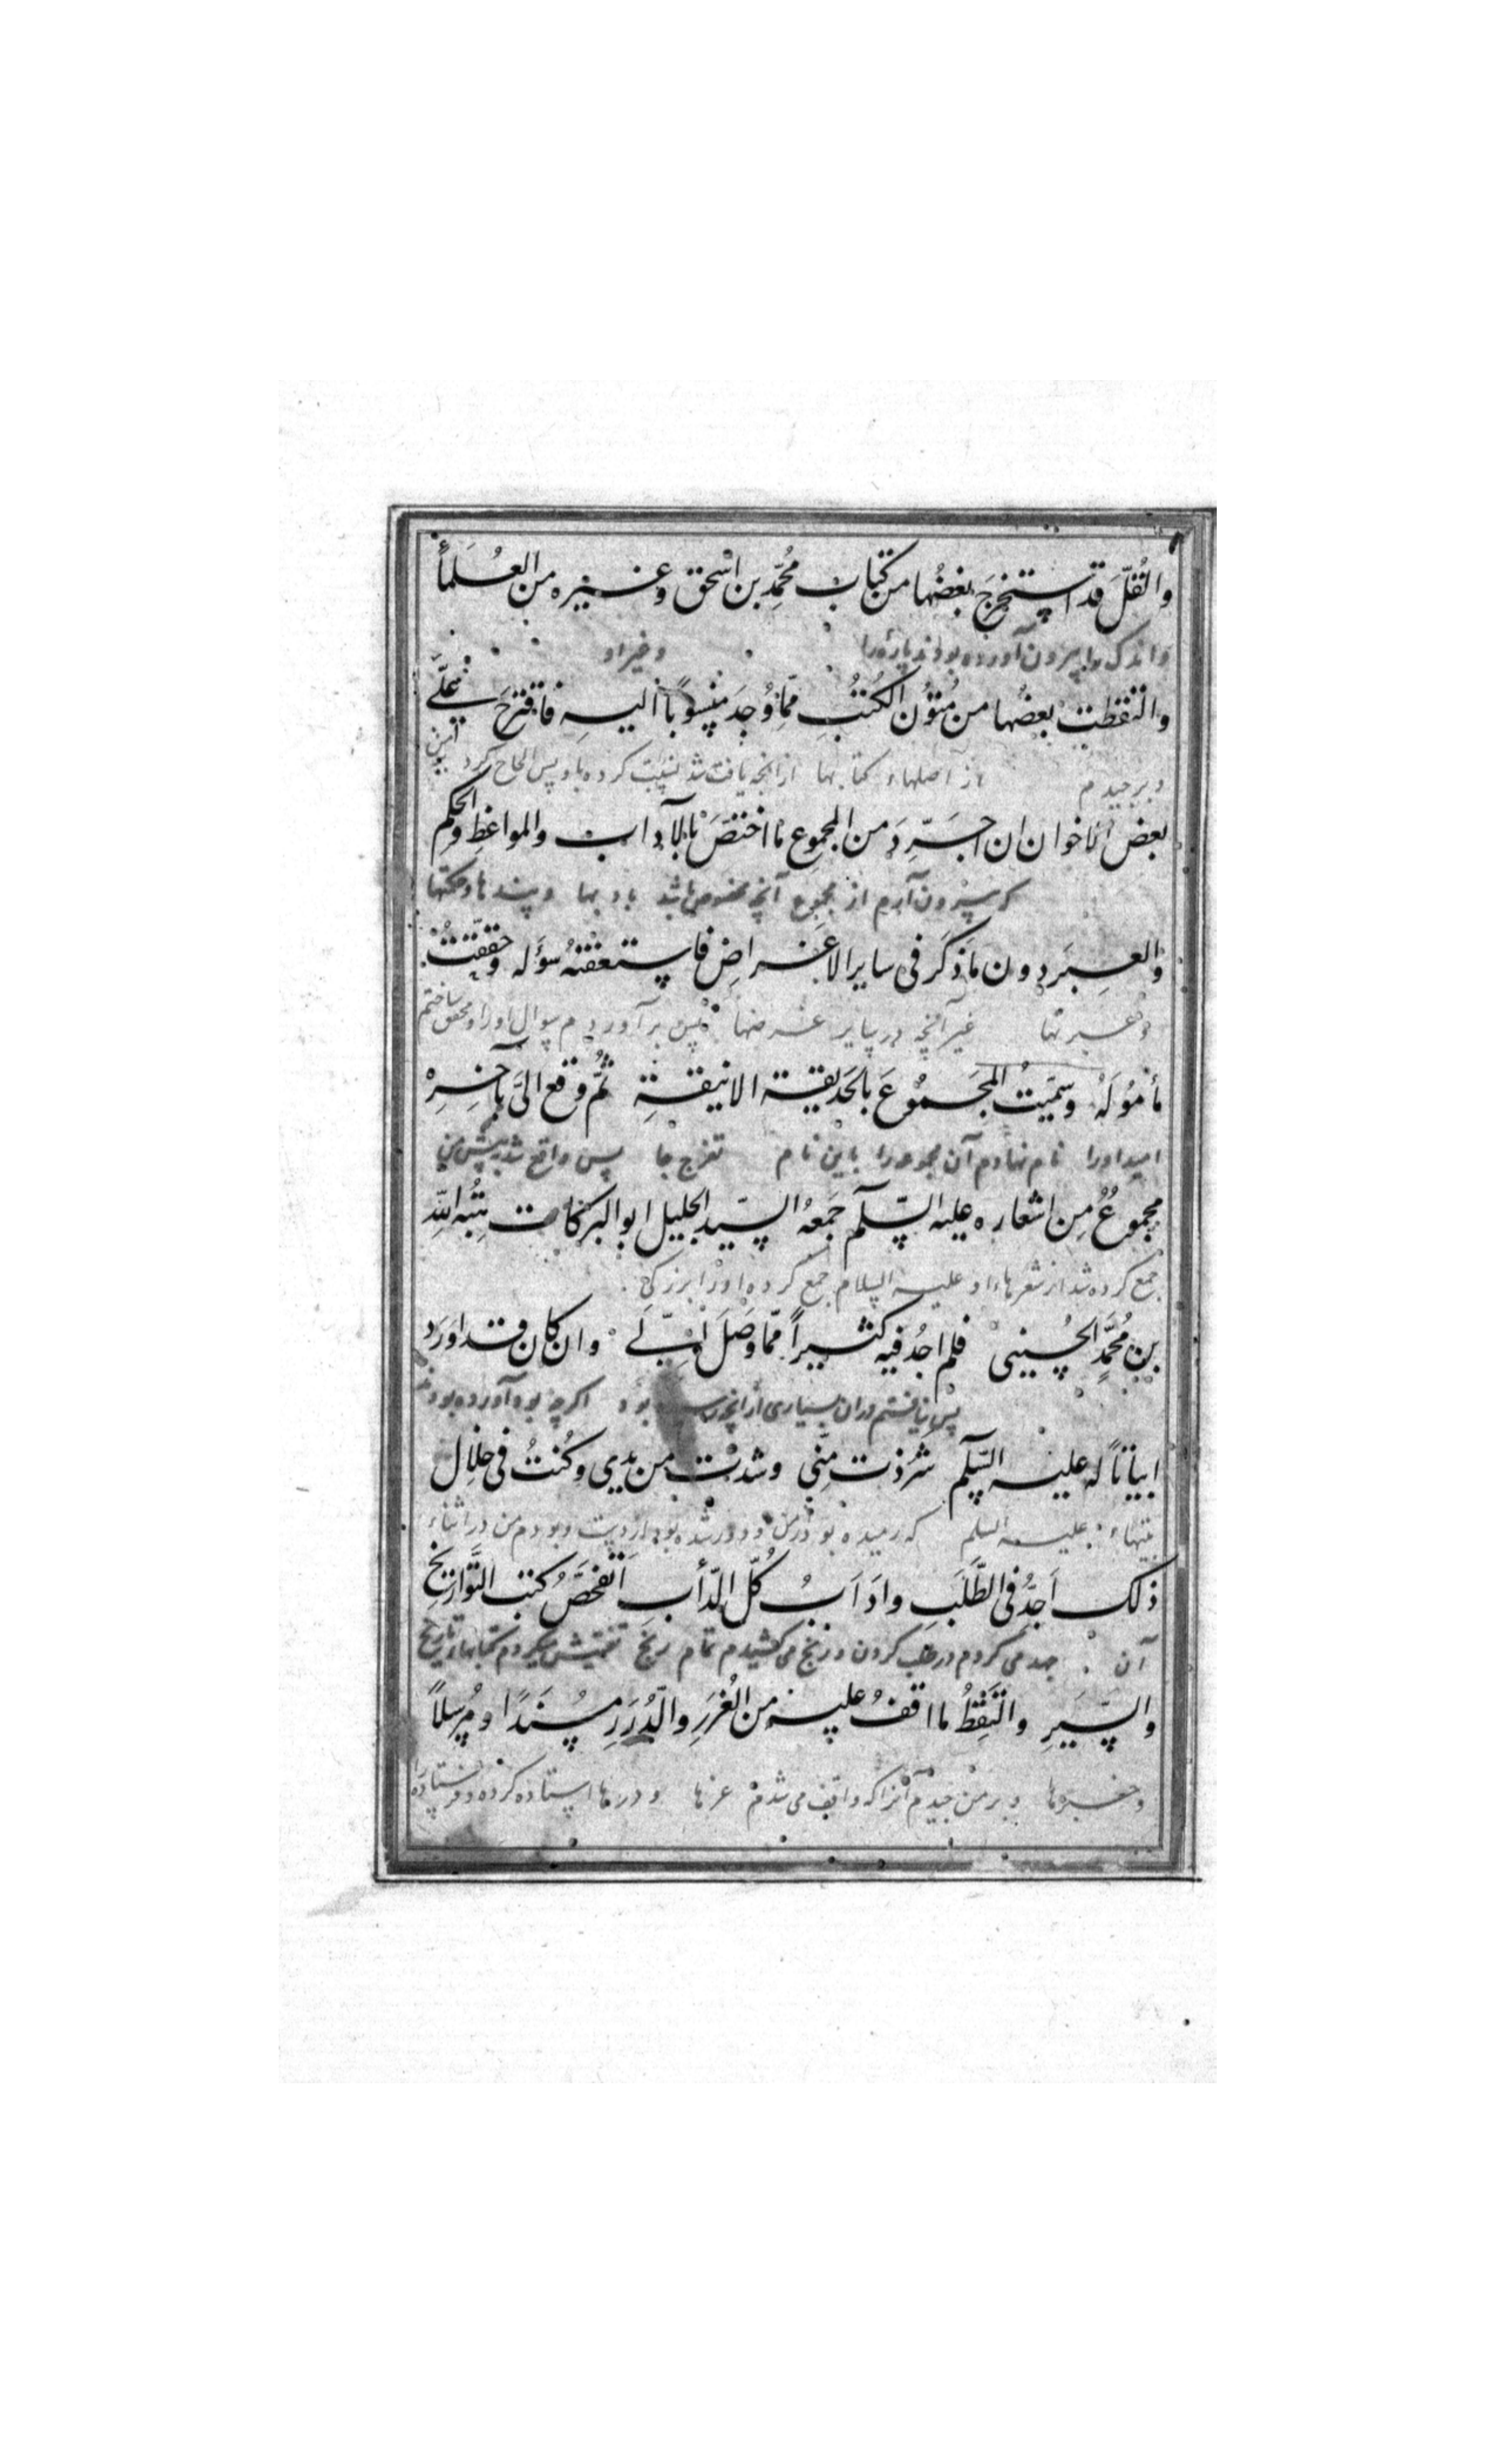 والقُلّ قد استخرجَ بعضُها من كتاب محُمّد بن اسْحق وغيره من العُلمأ
واندک را بیرون آورده بودند پارهٔ را وغیر او
والتقطت بعضُها من مُتُون الكُتُبِ ممّا وُجدَ منسُوباً اليهِ فاقترحَ علَّے
وبرچیدم از اصلهاء کتابها ازانچه یافت شد نسبت کرده باو پس الحاح کرد
بعض الاخوان ان اجَرِّدَ من المجموع ما اختصَّ بالآداب والمواعظِ والحكم
که بیرون آرم از مجموع آنچه مخصوص باشد بادبها وپندها وحکمتها
والعِبَر دون ما ذكرَ فى ساير الاغراض فاسعفتهُ سؤَله وحققتُ
وعبرتها غیر آنچه در سایر غرضها پس برآوردم سوال اورا ومحقق ساختم
مأمُولَهُ وسمّيتُ المجَمُوعَ بالحَديقة الانيقةِ ثُمّ وقع الىَّ بآخرِهْ
امید اورا نام نهادم آن مجموعرا باین نام تفرج جا پس واقع شد پیش من
مجموعُ مِن اشعاره عليه السّلم جَمعهُ السّيد الجليل ابو البركات هبة اللّه
جمع کرده شد از شعرهاء او علیه السلام جمع کرده اورا بزرگی
بن مُحمَّدٍ الحُسينى فلم اجُد فيه كثيراً ممّا وصَلَ اِلَىَّ وان كان قد اورَدَ
پس نیافتم دران بسیاری ازانچه رسیده بود اگرچه بود آورده بود
ابياتاً له عليه السّلم شرُدَت منّى وشذت من يدى وكُنتُ فى خلال
بیتهاء علیه السلم که رمیده بود از من ودور شده بود از دست وبودم من در اثناء
ذلك اَجدُّ فى الطَّلَبِ واَدَأبُ كُلّ الدّأبِ اَتَفحّصُ كتب التَّواريخِ
آن جهد می کردم در طلب کردن ورنج می کشیدم تمام رنج تفتیش میکردم کتابهاء تاریخ
والسِّيَرِ والتَقِطُ ما اقفُ عليه من الغُرَرِ والدُّرَرِ مُسنَدًا ومُرسلاً
وبر می چیدم آنرا که واقف می شدم غرها ودرها استاده کرده وفرستاده را